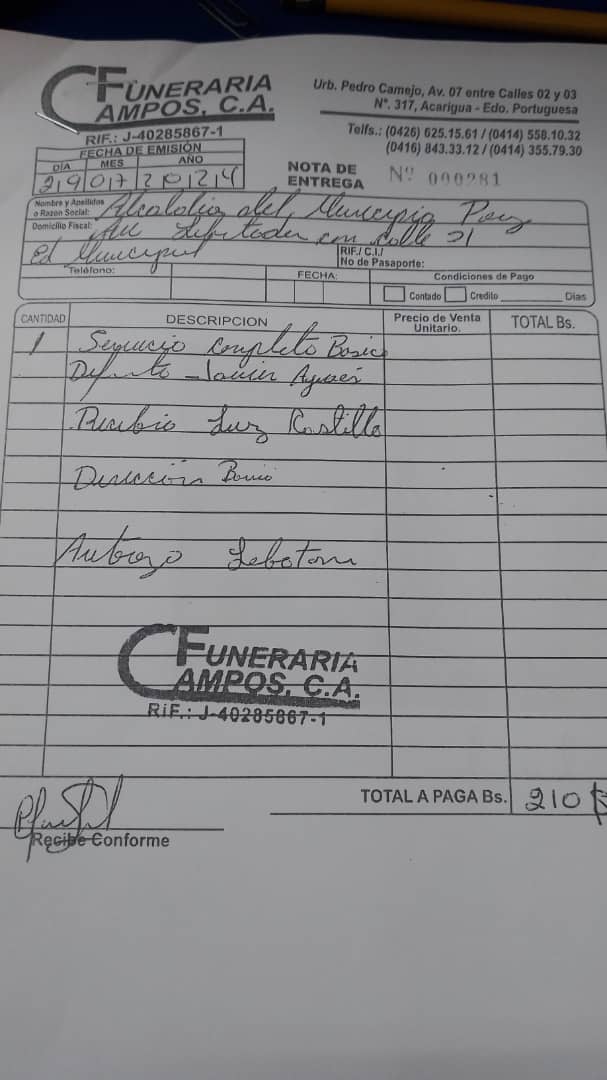 FUNERARIA
CAMPOS, C.A.
RIF.: J-40285867-1
Urb. Pedro Camejo, Av. 07 entre Calles 02 y 03
N°. 317, Acarigua - Edo. Portuguesa
Telfs.: (0426) 625.15.61 / (0414) 558.10.32
(0416) 843.33.12 / (0414) 355.79.30
FECHA DE EMISIÓN
DÍA MES AÑO
29 07 2024
NOTA DE
ENTREGA
N° 000281
Nombre y Apellidos
o Razon Social: Alcaldia del Municipio Paez
Domicilio Fiscal: Av con Calle 31
Ed Municipal
RIF./ C.I./
No de Pasaporte:
Teléfono: FECHA: Condiciones de Pago
Contado Credito Dias
CANTIDAD DESCRIPCION Precio de Venta Unitario. TOTAL Bs.
1 Servicio Completo Basico
Difunto - Javier
Recibio Luz Castillo
Dirección
Autorizo
FUNERARIA
CAMPOS, C.A.
RIF.: J-40285867-1
TOTAL A PAGA Bs. 210 $
Recibe Conforme